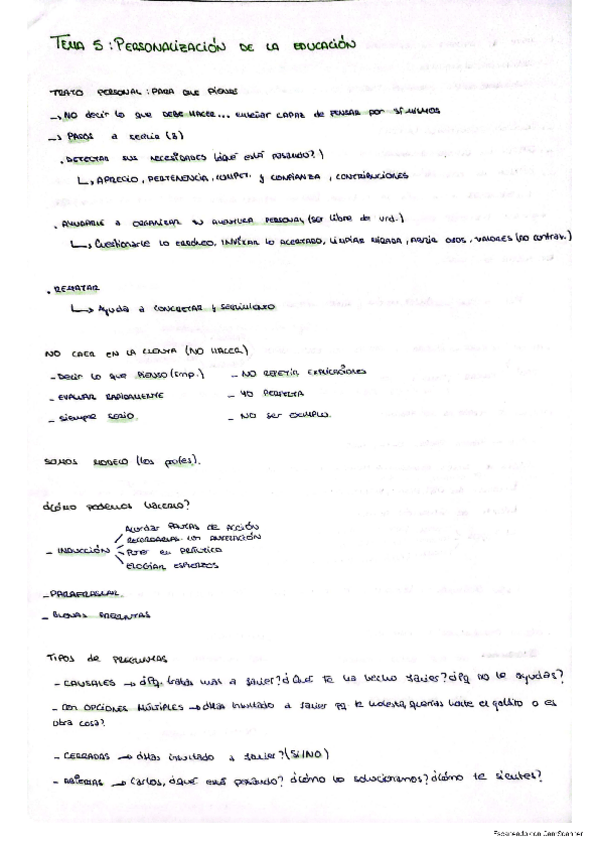 TEMA 5: PERSONALIZACIÓN DE LA EDUCACIÓN
TRATO PERSONAL: PARA QUE PIENSE
→ NO decir lo que DEBE HACER... enseñar CAPAZ de PENSAR por SÍ MISMOS
→ PASOS a seguir (3)
. DETECTAR SUS NECESIDADES (¿qué está pasando?)
↳ APRECIO, PERTENENCIA, COMPET. y CONFIANZA, CONTRIBUCIONES
. AYUDARLE A ORGANIZAR SU AVENTURA PERSONAL (ser libre de vrd.)
↳ Cuestionarle lo erróneo, INVITAR lo ACERTADO, LIMPIAR MIRADA, ABRIR OJOS, VALORES (no contrav.)
. REMATAR
↳ Ayuda a CONCRETAR y SEGUIMIENTO
NO CAER EN LA CUENTA (NO HACER)
- Decir lo que PIENSO (Imp.) - NO REPETIR EXPLICACIONES
- EVALUAR RÁPIDAMENTE - YO PERFECTA
- Siempre SERIO. - NO ser EJEMPLO.
SOMOS MODELO (los profes).
¿Cómo podemos hacerlo?
Acordar PAUTAS DE ACCIÓN
RECORDARLAS con ANTELACIÓN
- INDUCCIÓN Poner en PRÁCTICA
ELOGIAR ESFUERZOS
- PARAFRASEAR
- BUENAS PREGUNTAS
TIPOS de PREGUNTAS
- CAUSALES → ¿Pq. tratas mal a Javier? ¿Qué te ha hecho Javier? ¿Pq no le ayudas?
- CON OPCIONES MÚLTIPLES → ¿Has insultado a Javier pq te molesta, querías hacerte el gallito o es
otra cosa?
- CERRADAS → ¿Has insultado a Javier? (SI/NO)
- ABIERTAS → Carlos, ¿qué está pasando? ¿Cómo lo solucionamos? ¿Cómo te sientes?
Escaneado con CamScanner